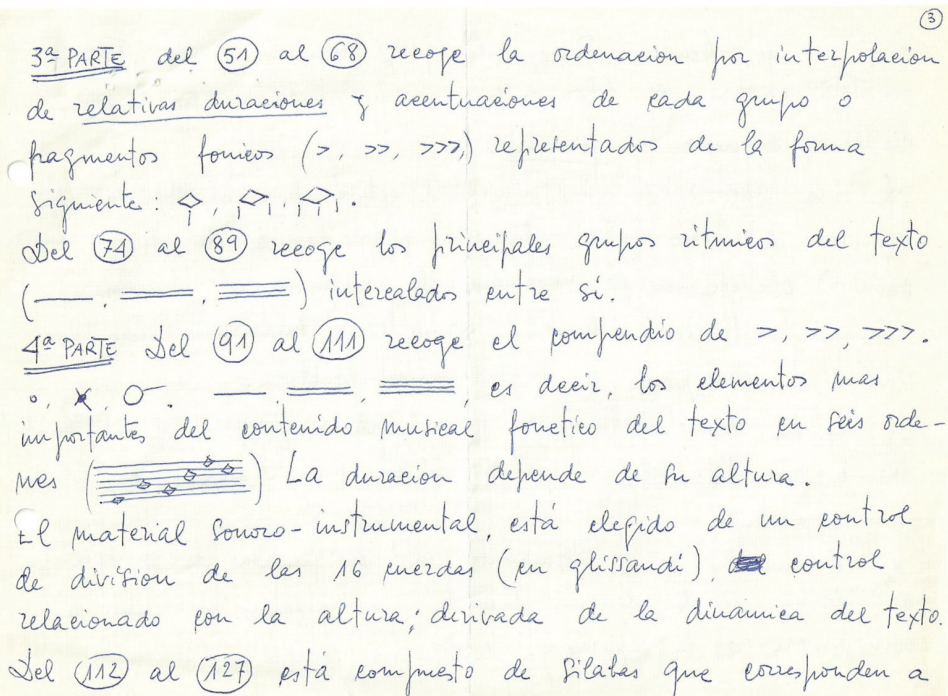 3
3ª PARTE del 51 al 68 recoge la ordenacion por interpolacion
de relativas duraciones y acentuaciones de cada grupo o
fragmentos fonicos (>, >>, >>>,) representados de la forma
siguiente:
Del 74 al 89 recoge los principales grupos ritmicos del texto
( , , ) intercalados entre si.
4ª PARTE Del 91 al 111 recoge el compendio de >, >>, >>>.
es decir, los elementos mas
importantes del contenido musical fonetico del texto en seis orde-
nes ( ) La duracion depende de su altura.
El material sonoro-instrumental, está elegido de un control
de division de las 16 cuerdas (en glissandi), control
relacionado con la altura; derivada de la dinamica del texto.
Del 112 al 127 está compuesto de silabas que corresponden a